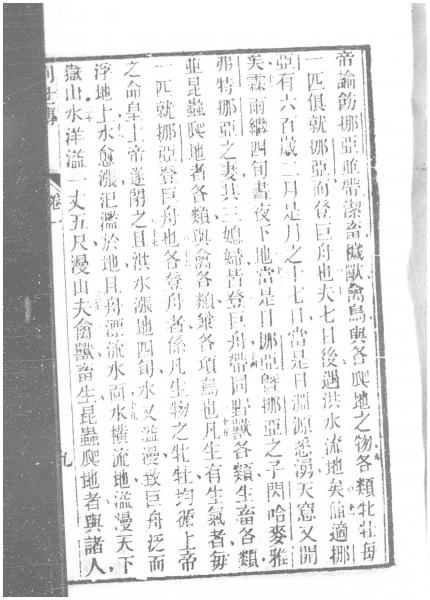 帝諭飭挪亞並帶潔畜穢獸禽鳥與各爬地之物各類牝牡每
一匹俱就挪亞而登巨舟也夫七日後遇洪水流地矣維適挪
亞有六百歲二月是月之十七日當是日淵源悉湧天窓又開
矣霖雨繼四旬晝夜下地當是日挪亞曁挪亞之子閃哈麥雅
弗特挪亞之妻其三媳婦皆登巨舟帶同野獸各類生畜各類
並昆蟲爬地者各類與禽各類兼各項鳥也凡生有生氣者每
一匹就挪亞登巨舟也各登舟者係凡生物之牝牡均循上帝
之命皇上帝遂閉之且洪水漲地四旬水又溢漫致巨舟泛而
浮地上水愈漲汜濫於地且舟漂流水面水橫流地溢漫天下
嶽山水洋溢一丈五尺漫山夫禽獸畜生昆蟲爬地者與諸人
世傳
卷一
九